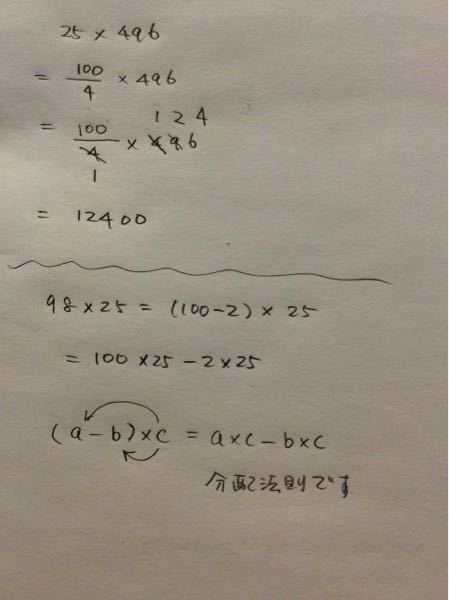 25 × 496
= 100/4 × 496
= 100/4 × 496 124
1
= 12400
98 × 25 = (100-2) × 25
= 100 × 25 - 2 × 25
(a-b)×c = a×c-b×c
分配法則です